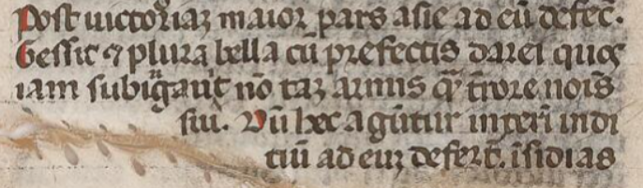 Post uictoriaꝫ maior pars asie ad eū defec̄.
Gessit ⁊ plura bella cū prefectis darei quos
iam subigaūt nō taꝫ armis q̄ t̄rore nois̄
sui. Dū hec agūtur interī indi
tiū ad euꝫ defert̄. īsidias